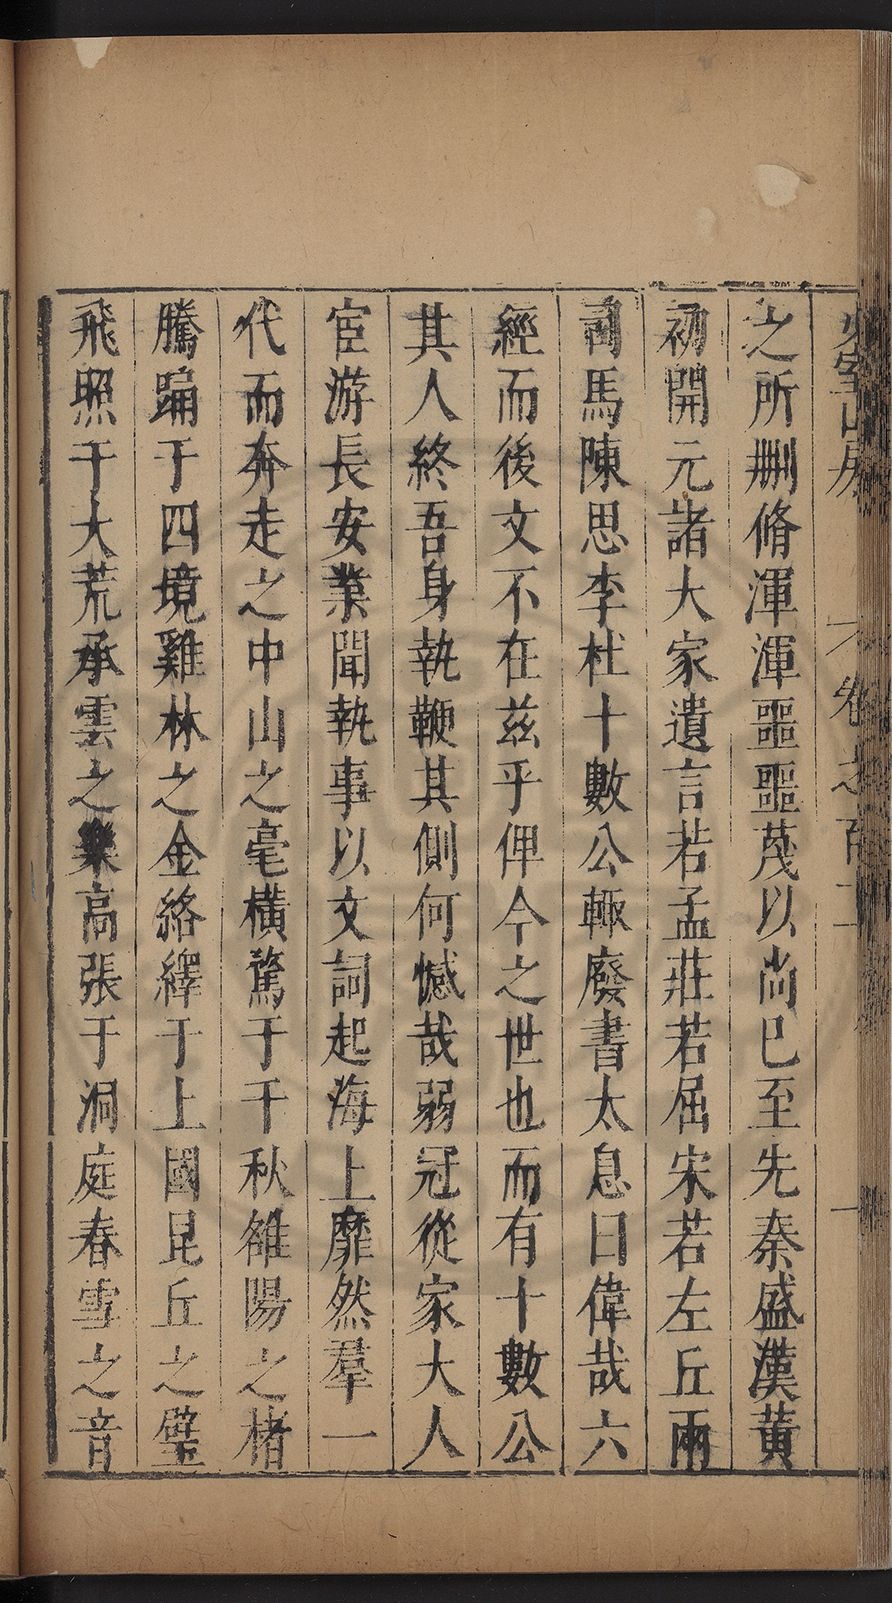 少室山房 卷之百二 一
之所刪脩渾渾噩噩茂以尚巳至先秦盛漢黃
初開元諸大家遺言若孟莊若屈宋若左丘兩
司馬陳思李杜十數公輒廢書太息曰偉哉六
經而後文不在兹乎俾今之世也而有十數公
其人終吾身執鞭其側何憾哉弱冠從家大人
宦游長安業聞執事以文詞起海上靡然羣一
代而奔走之中山之毫橫騖于千秋雒陽之楮
騰踊于四境雞林之金絡繹于上國昆丘之璧
飛照于大荒承雲之樂高張于洞庭春雪之音